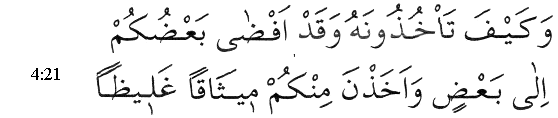 وَكَيْفَ تَاْخُذُونَهُ وَقَدْ اَفْضٰى بَعْضُكُمْ
4:21 اِلٰى بَعْضٍ وَاَخَذْنَ مِنْكُمْ مٖيثَاقًا غَلٖيظًا